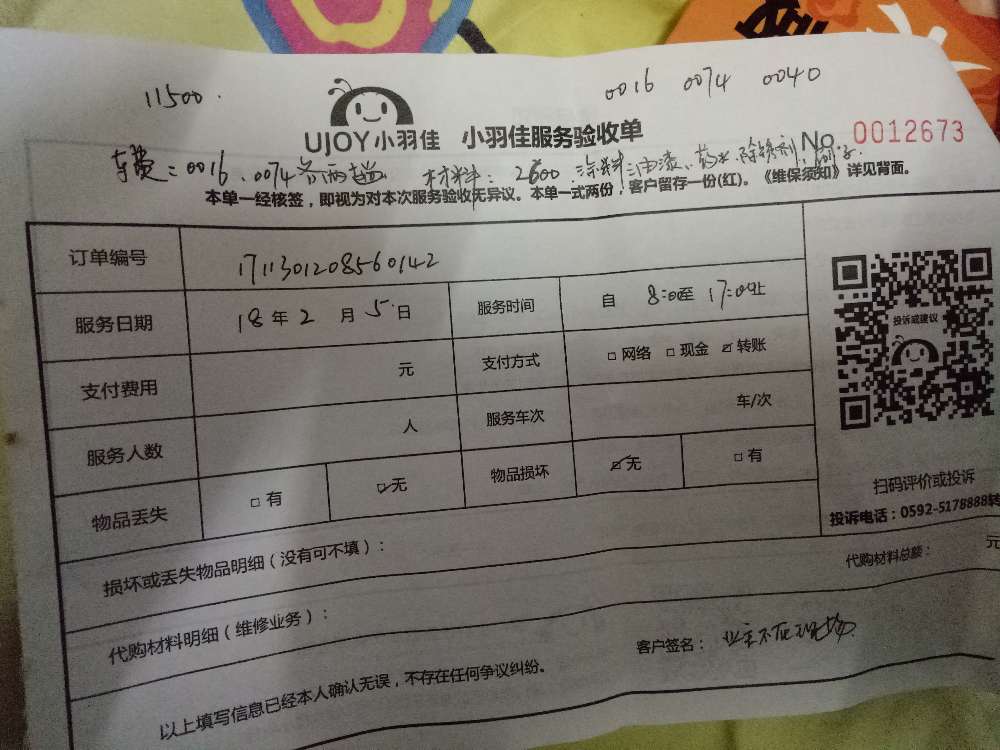 11500.
0016 0074 0040
UJOY小羽佳 小羽佳服务验收单 No. 0012673
车费：0016、0074各两趟 材料：2600 涂料 油漆、药水、除锈剂、刷子
本单一经核签，即视为对本次服务验收无异议。本单一式两份，客户留存一份(红)。《维保须知》详见背面。
订单编号 1711301208560142
服务日期 18年2月5日 服务时间 自 8:00至 17:00止
投诉或建议
支付费用 元 支付方式 □网络 □现金 ☑转账
服务人数 人 服务车次 车/次
物品丢失 □有 ☑无 物品损坏 ☑无 □有
扫码评价或投诉
投诉电话：0592-5178888转
损坏或丢失物品明细（没有可不填）：
代购材料明细（维修业务）： 代购材料总额： 元
以上填写信息已经本人确认无误，不存在任何争议纠纷。 客户签名：业主不在现场